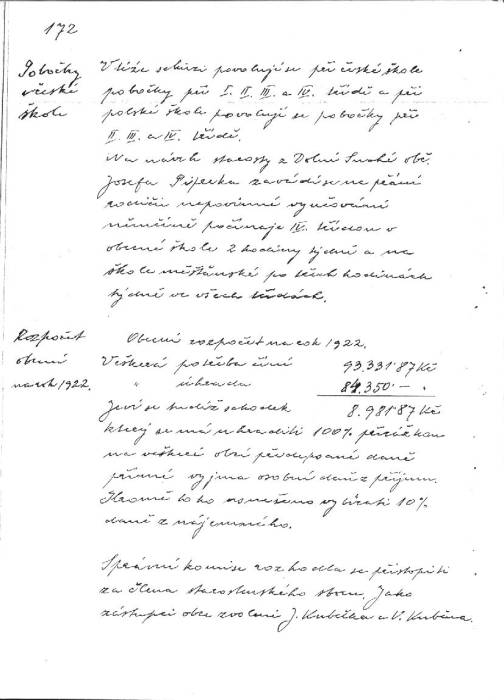 172
Pobočky
v české
škole
V téže schůzi povolují se při české škole
pobočky při I. II. III. a IV. třídě a při
polské škole povolují se pobočky při
II. III. a IV. třídě.
Na návrh starosty z Dolní Suché obč.
Josefa Pipreka zavádí se na přání
rodičů nepovinné vyučování
němčině počínaje IV. třídou v
obecné škole 2 hodiny týdně a na
škole měšťanské po třech hodinách
týdně ve všech třídách.
Rozpočet
obecní
na rok 1922.
Obecní rozpočet na rok 1922.
Veškerá potřeba činí 93.331·87 Kč
„ úhrada 84.350·— „
Jeví se tudíž schodek 8.981·87 Kč
který se má uhraditi 100% přirážkou
na veškeré obci předepsané daně
přímé vyjma osobní daň z příjmu.
Kromě toho usneseno vybírati 10%
daně z nájemného.
Správní komise rozhodla se přistoupiti
za člena starostenského sboru. Jako
zástupci obce zvoleni J. Kubečka a V. Kuběna.